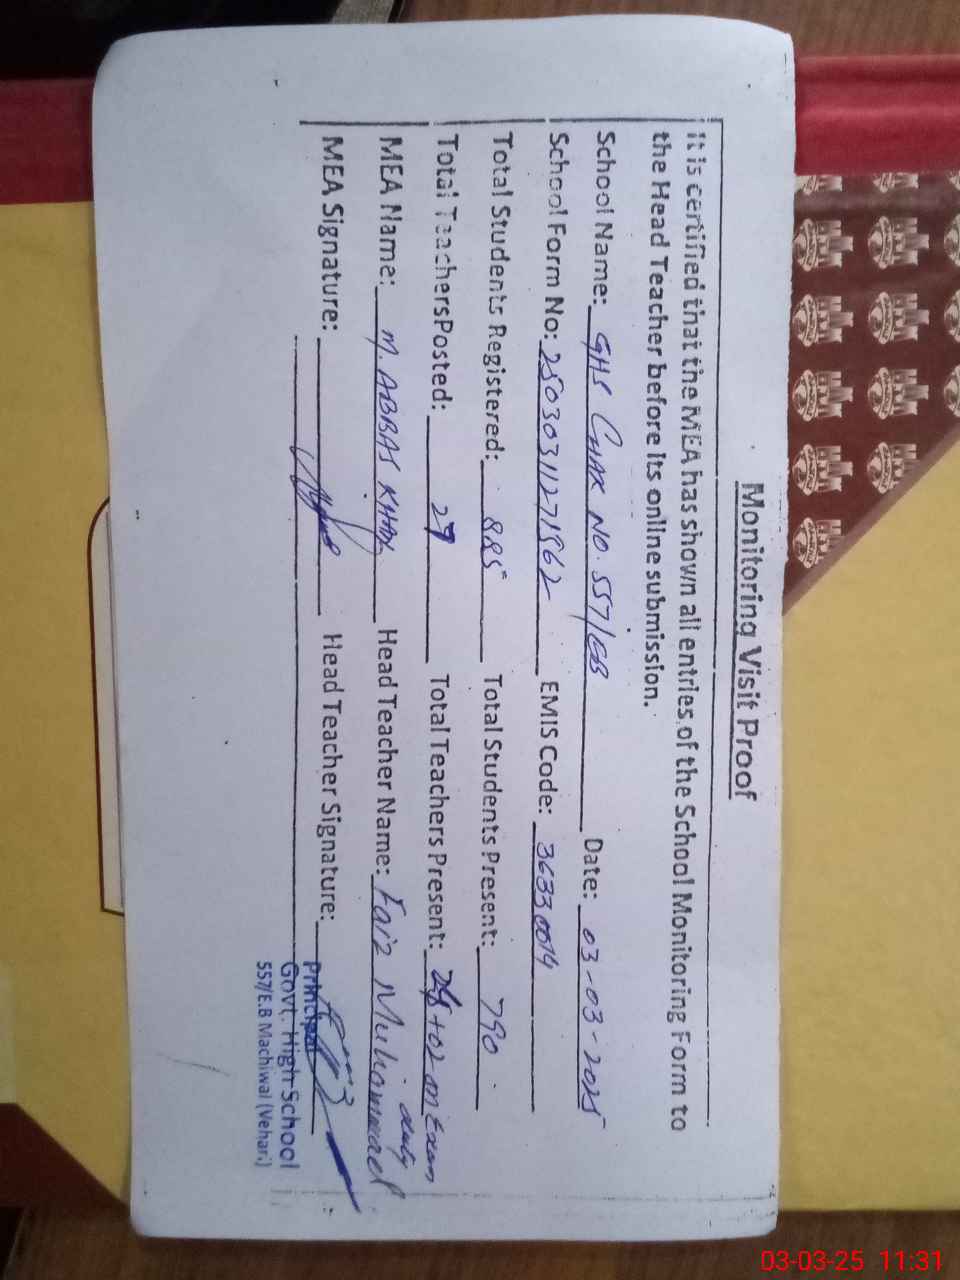 Monitoring Visit Proof
It is certified that the MEA has shown all entries of the School Monitoring Form to
the Head Teacher before its online submission.
School Name: GHS CHAK NO. 557/EB Date: 03-03-2025
School Form No: EMIS Code: 36330014
Total Students Registered: 885 Total Students Present: 790
Total TeachersPosted: 29 Total Teachers Present: +02 on Exam duty
MEA Name: M. ABBAS KHAN Head Teacher Name: Faiz Muhammad
MEA Signature: Head Teacher Signature:
Principal
Govt. High School
557/E.B Machiwal (Vehari)
03-03-25 11:31